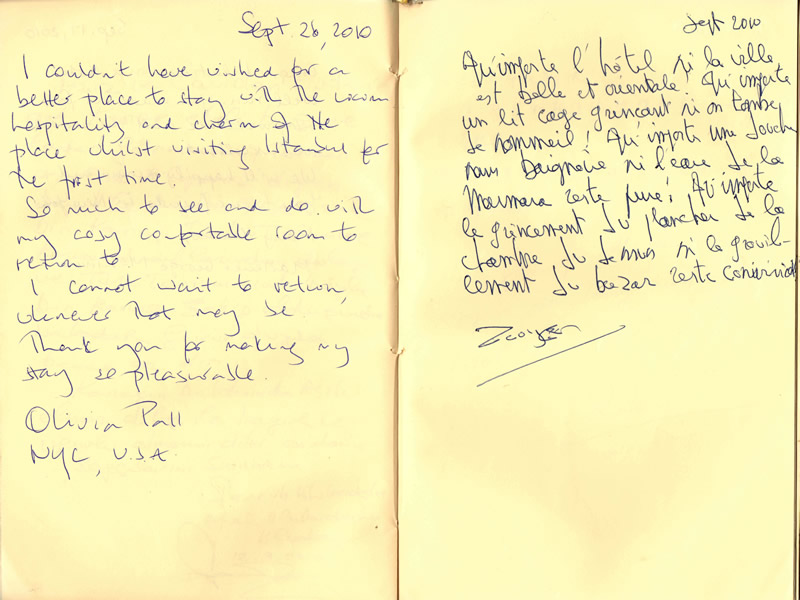 Sept. 26, 2010
I couldn't have wished for a
better place to stay with the warm
hospitality and charm of the
place whilst visiting Istanbul for
the first time.
So much to see and do with
my cosy comfortable room to
return to
I cannot want to return,
whenever that may be
Thank you for making my
stay so pleasurable.
Olivia Pall
NYC, U.S.A.
Sept 2010
Qu'importe l'hôtel si la ville
est belle et orientale! Qu'importe
un lit cage grinçant si on tombe
de sommeil! Qu'importe une douche
sans baignoire si l'eau de la
Marmara reste pure! Qu'importe
le grincement du plancher de la
chambre du dessus si le grouil-
lement du bazar reste convivial